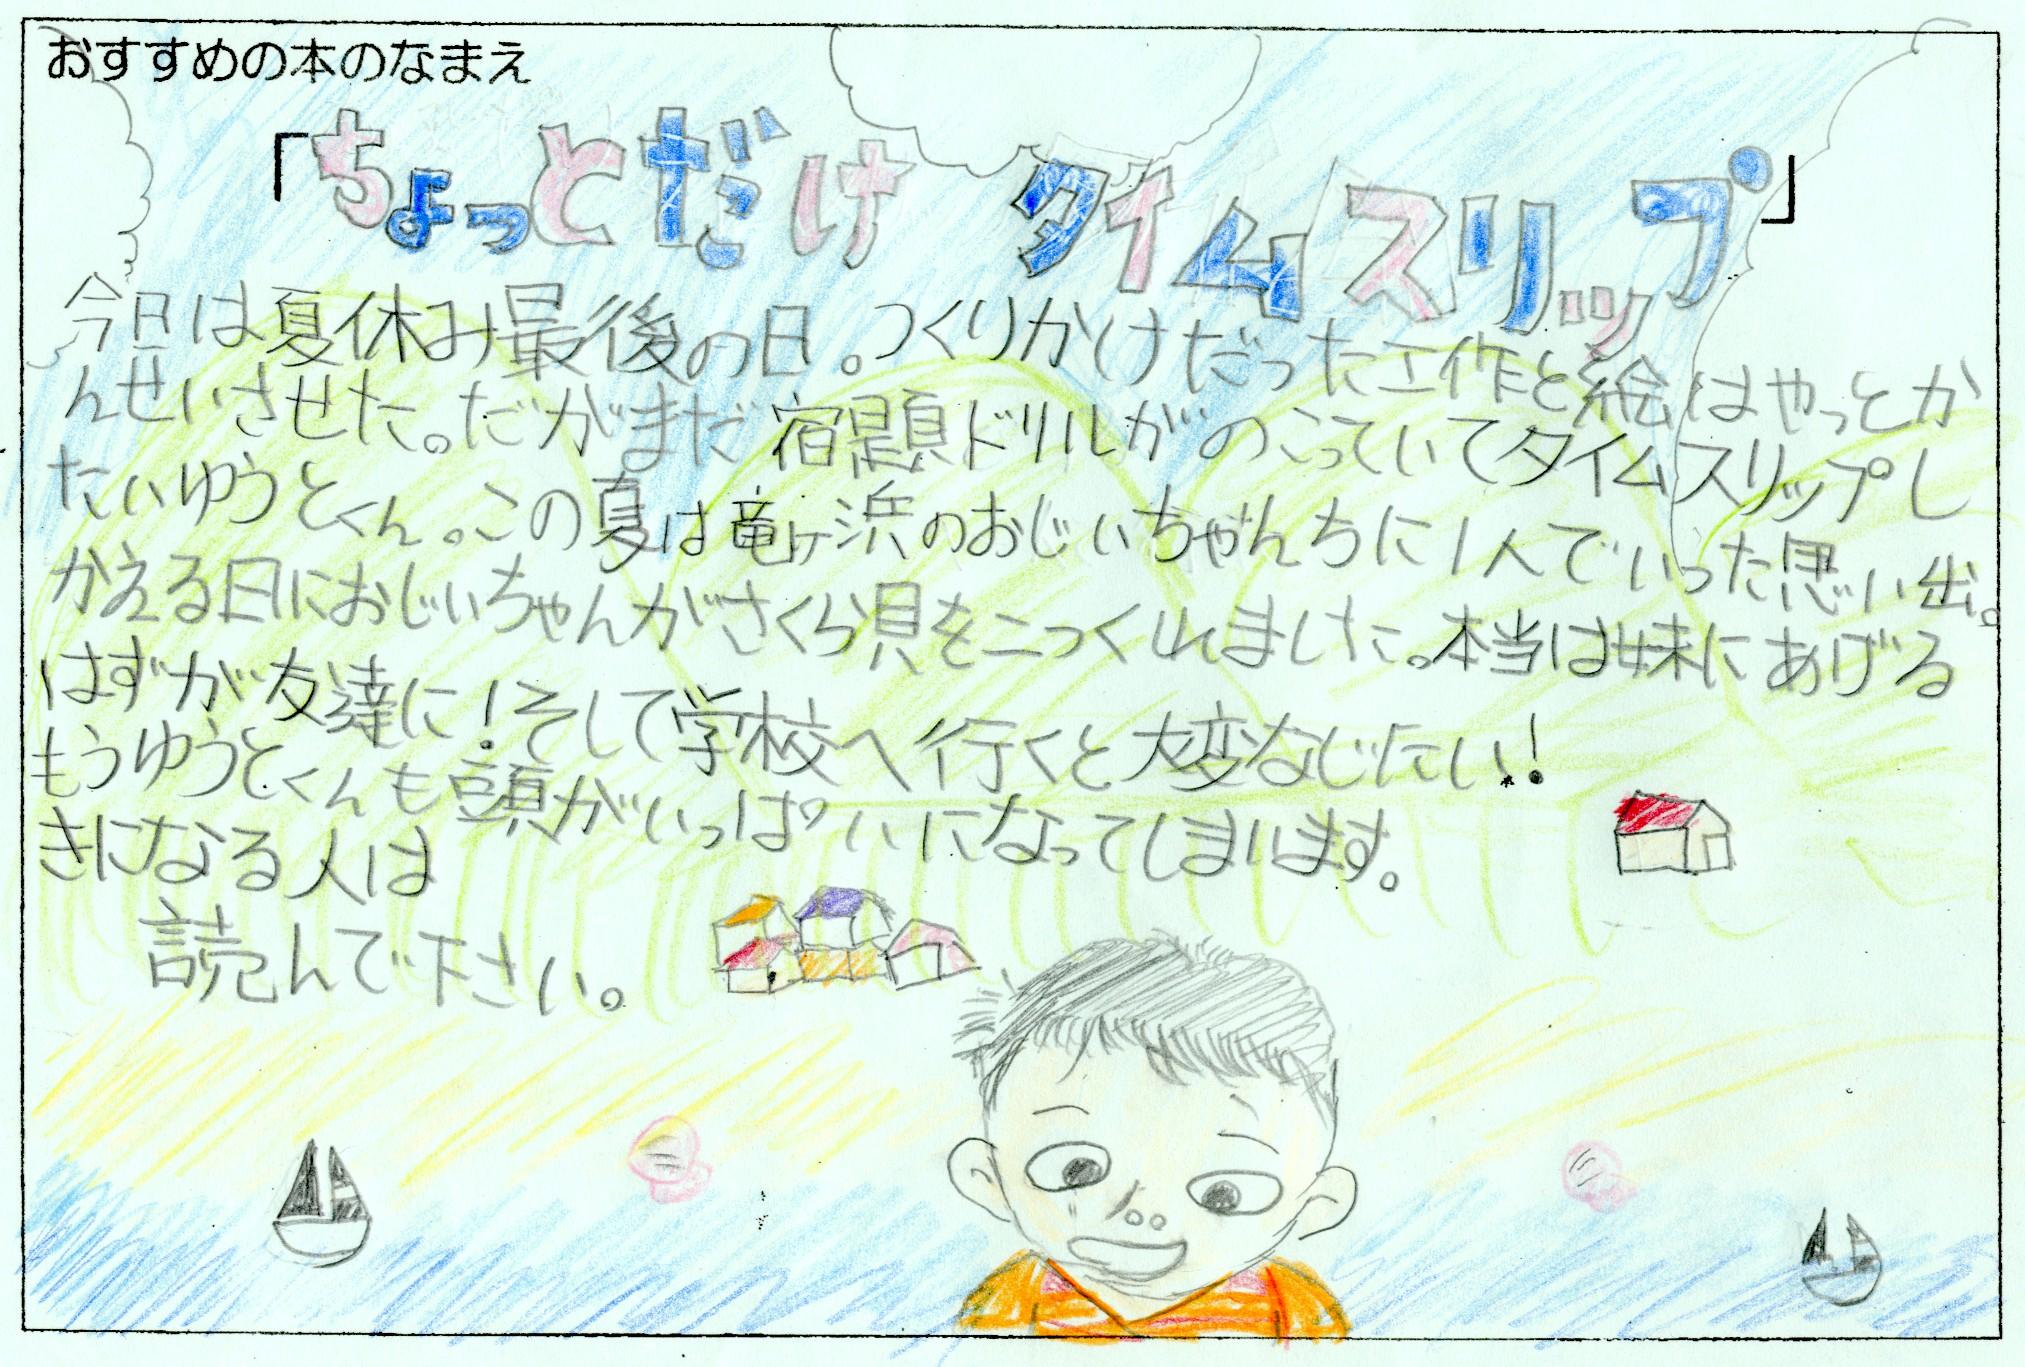 おすすめの本のなまえ
「ちょっとだけ タイムスリップ」
今日は夏休み最後の日。つくりかけだった工作と絵はやっとか
んせいさせた。だがまだ宿題ドリルがのこっていてタイムスリップし
たいゆうとくん。この夏は竜ヶ浜のおじいちゃんちに1人でいった思い出。
かえる日におじいちゃんがさくら貝を二つくれました。本当は妹にあげる
はずが友達に!そして学校へ行くと大変なじたい!
もうゆうとくんも頭がいっぱいになってしまいます。
きになる人は
読んで下さい。